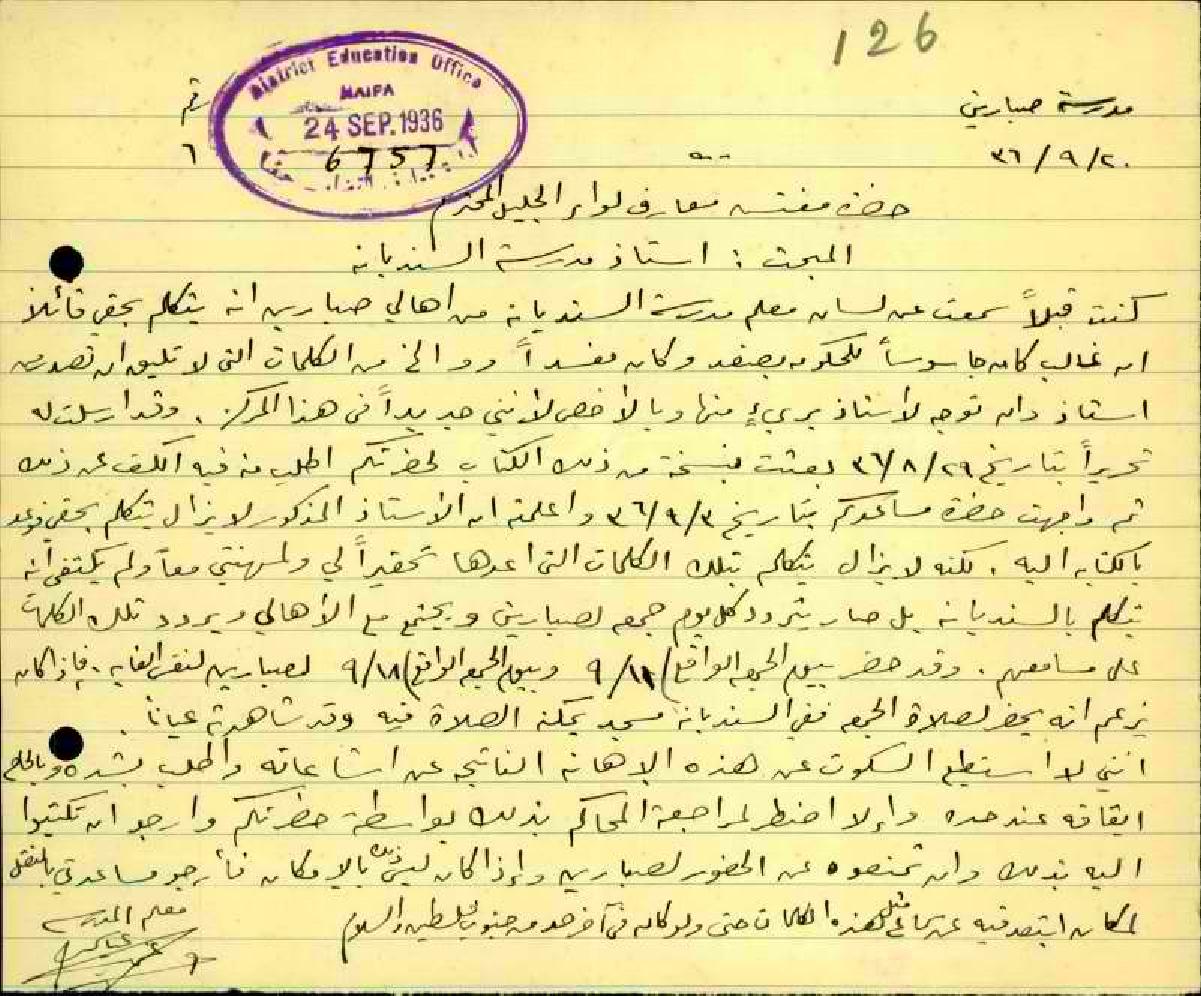 126
District Education Office
HAIFA
24 SEP. 1936
6757
مدرسة صبارين
رقم
٣٦/٩/٢٠
٦
حضرة مفتش معارف لواء الجليل المحترم
المبحث : استاذ مدرسة السنديانه
كنت قبلاً سمعت عن لسان معلم مدرسة السنديانه من اهالي صبارين انه يتكلم بحقي قائلاً
ان غالب كان جاسوساً للحكومه بصفد وكان مفسداً ووالخ من الكلمات التي لا تليق ان تصدر من
استاذ وان توجه لاستاذ بريءٍ منها وبالاخص لأنني جديداً في هذا المركز. وقد ارسلت له
تحريراً بتاريخ ٣٦/٨/٢٩ بعثت بنسخة من ذلك الكتاب لحضرتكم اطلب منه فيه الكف عن ذلك
ثم واجهت حضرة مساعدكم بتاريخ ٣٦/٩/٣ واعلمته ان الأستاذ المذكور لا يزال يتكلم بحقي فوعد
بالكتابه اليه. لكنه لا يزال يتكلم بتلك الكلمات التي اعدها تحقيراً لي ولمهنتي معاً ولم يكتفي أنه
يتكلم بالسنديانه بل صار يتردد كل يوم جمعه لصبارين ويجتمع مع الأهالي ويردد تلك الكلمات
على مسامعهم. وقد حضر بيوم الجمعه الواقع ٩/١١ وبيوم الجمعه الواقع ٩/١٨ لصبارين لنفس الغايه. فإذا كان
يزعم انه يحضر لصلاة الجمعه ففي السنديانه مسجد يمكنه الصلاة فيه وقد شاهدته عياناً.
انني لا استطيع السكوت عن هذه الإهانه الناتجه عن اشاعاته واطلب بشده وبالحاح
ايقافه عند حده وإلا اضطر لمراجعة المحاكم بذلك بواسطة حضرتكم وارجو ان تكتبوا
اليه بذلك وان تمنعوه عن الحضور لصبارين وإذا كان ليس ذلك بالامكان فأرجو مساعدتي بالنقل
لمكان ابتعد فيه عن سماع مثل هذه الكلمات حتى ولو كان في آخر حدود جنوب فلسطين والسلام
معلم المدرسة